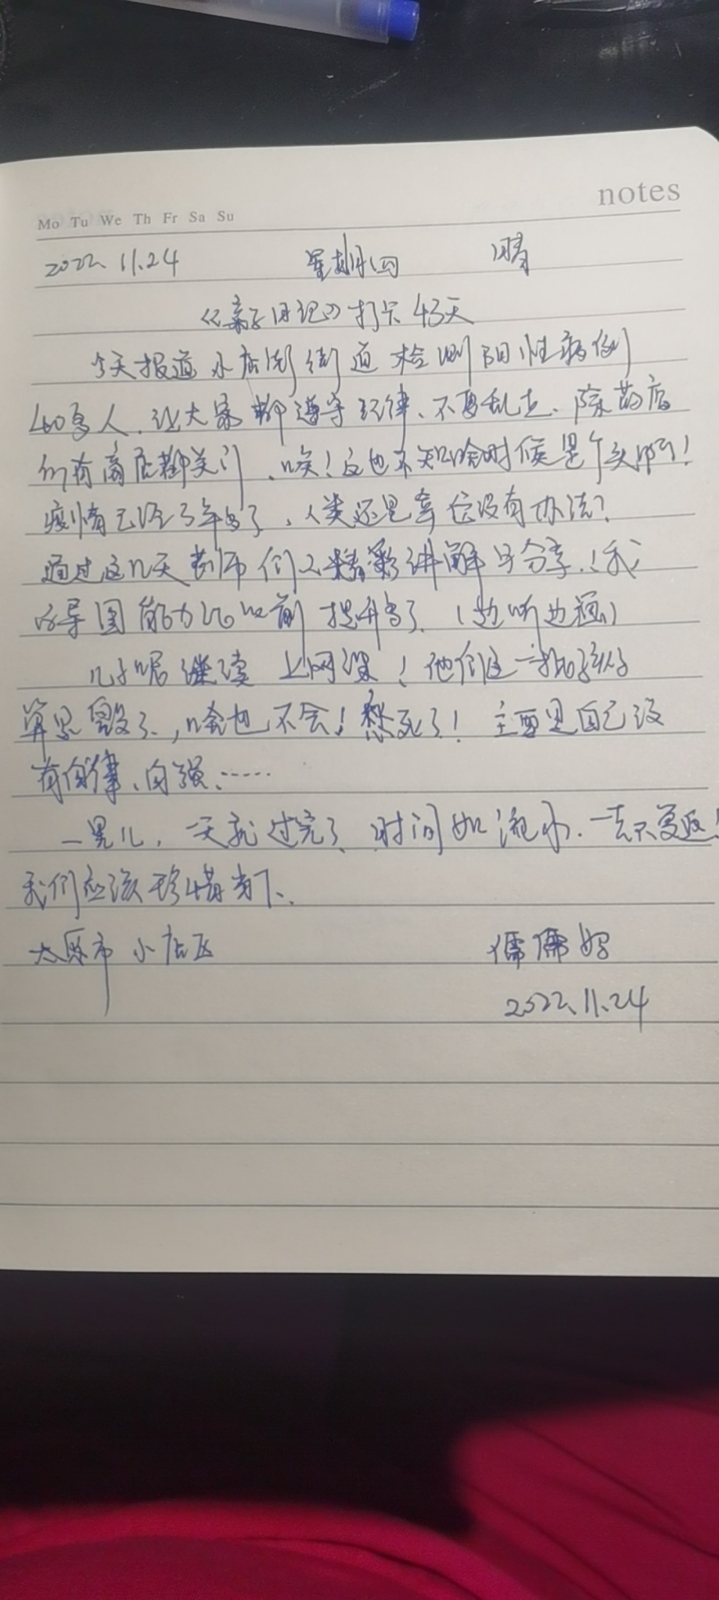 notes
Mo Tu We Th Fr Sa Su
2022.11.24 星期四 晴
《亲子日记》打卡43天
今天报道小店街街道检测阳性病例
40多人.让大家都遵守纪律、不要乱走.除药店
所有商店都关门.唉!这也不知啥时候是个头啊!
疫情已经3年多了,人类还是拿它没有办法?
通过这几天老师们的精彩讲解与分享.!我
的导图能力比以前提升多了.(边听边画)
儿子呢继续上网课!他们这一批孩子
算是毁了.,啥也不会!愁死了!主要是自己没
有自律、自强、……
一晃儿,一天就过完了.时间如流水.一去不复返!
我们应该珍惜当下、
太原市小店区 儒儒妈
2022.11.24